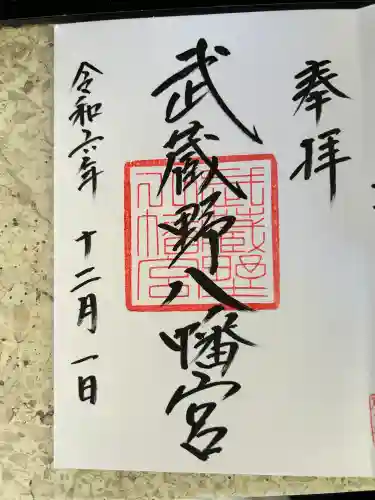 奉拝
武蔵野八幡宮
令和六年 十二月一日
武蔵野
八幡宮